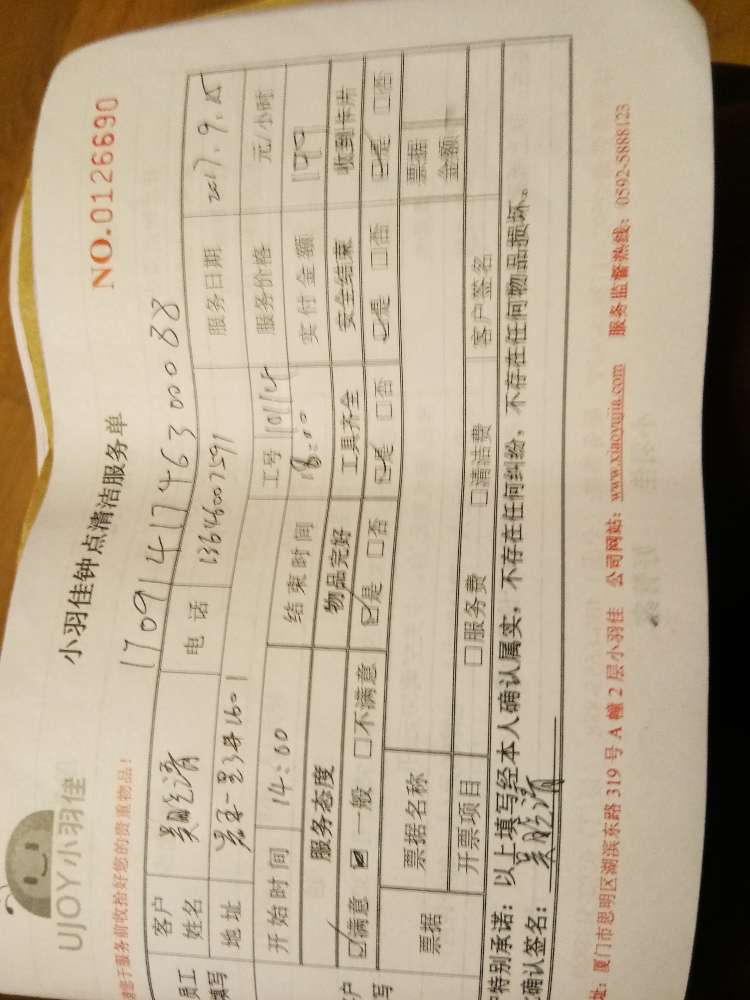 UJOY小羽佳
小羽佳钟点清洁服务单
NO.0126690
您于服务前收拾好您的贵重物品!
17091417463000088
员工 填写
客户姓名 电话 13646007591 服务日期 2017.9.15
地址 1601 工号 服务价格 元/小时
开始时间 14:00 结束时间 18:00 实付金额
服务态度 物品完好 工具齐全 安全结束 收到卡片
☑满意 一般 □不满意 ☑是 □否 ☑是 □否 ☑是 □否 ☑是 □否
票据 票据名称 票据金额
开票项目 □服务费 □清洁费 客户签名
特别承诺:以上填写经本人确认属实,不存在任何纠纷,不存在任何物品损坏。
确认签名:
址:厦门市思明区湖滨东路319号A幢2层小羽佳 公司网站:www.xiaoyujia.com 服务监督热线:0592-5888123